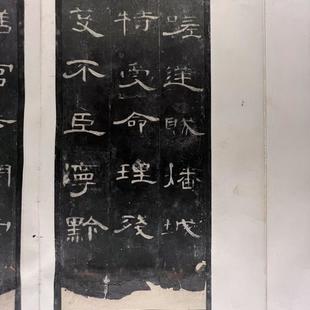 嗟逆賊燔城
特受命理殘
芟不臣寧黔